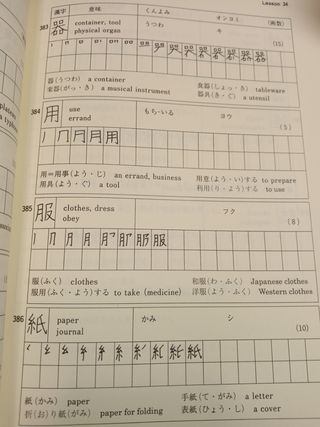 Lesson 34
漢字 意味 くんよみ オンヨミ (画数)
383 器 container, tool うつわ キ
physical organ (15)
器(うつわ) a container 食器(しょっ・き) tableware
楽器(がっ・き) a musical instrument 器具(き・ぐ) a utensil
384 用 use もち・いる ヨウ
errand (5)
用=用事(よう・じ) an errand, business 用意(よう・い)する to prepare
用具(よう・ぐ) a tool 利用(り・よう)する to use
385 服 clothes, dress フク
obey (8)
服(ふく) clothes 和服(わ・ふく) Japanese clothes
服用(ふく・よう)する to take (medicine) 洋服(よう・ふく) Western clothes
386 紙 paper かみ シ
journal (10)
紙(かみ) paper 手紙(て・がみ) a letter
折(お)り紙(がみ) paper for folding 表紙(ひょう・し) a cover